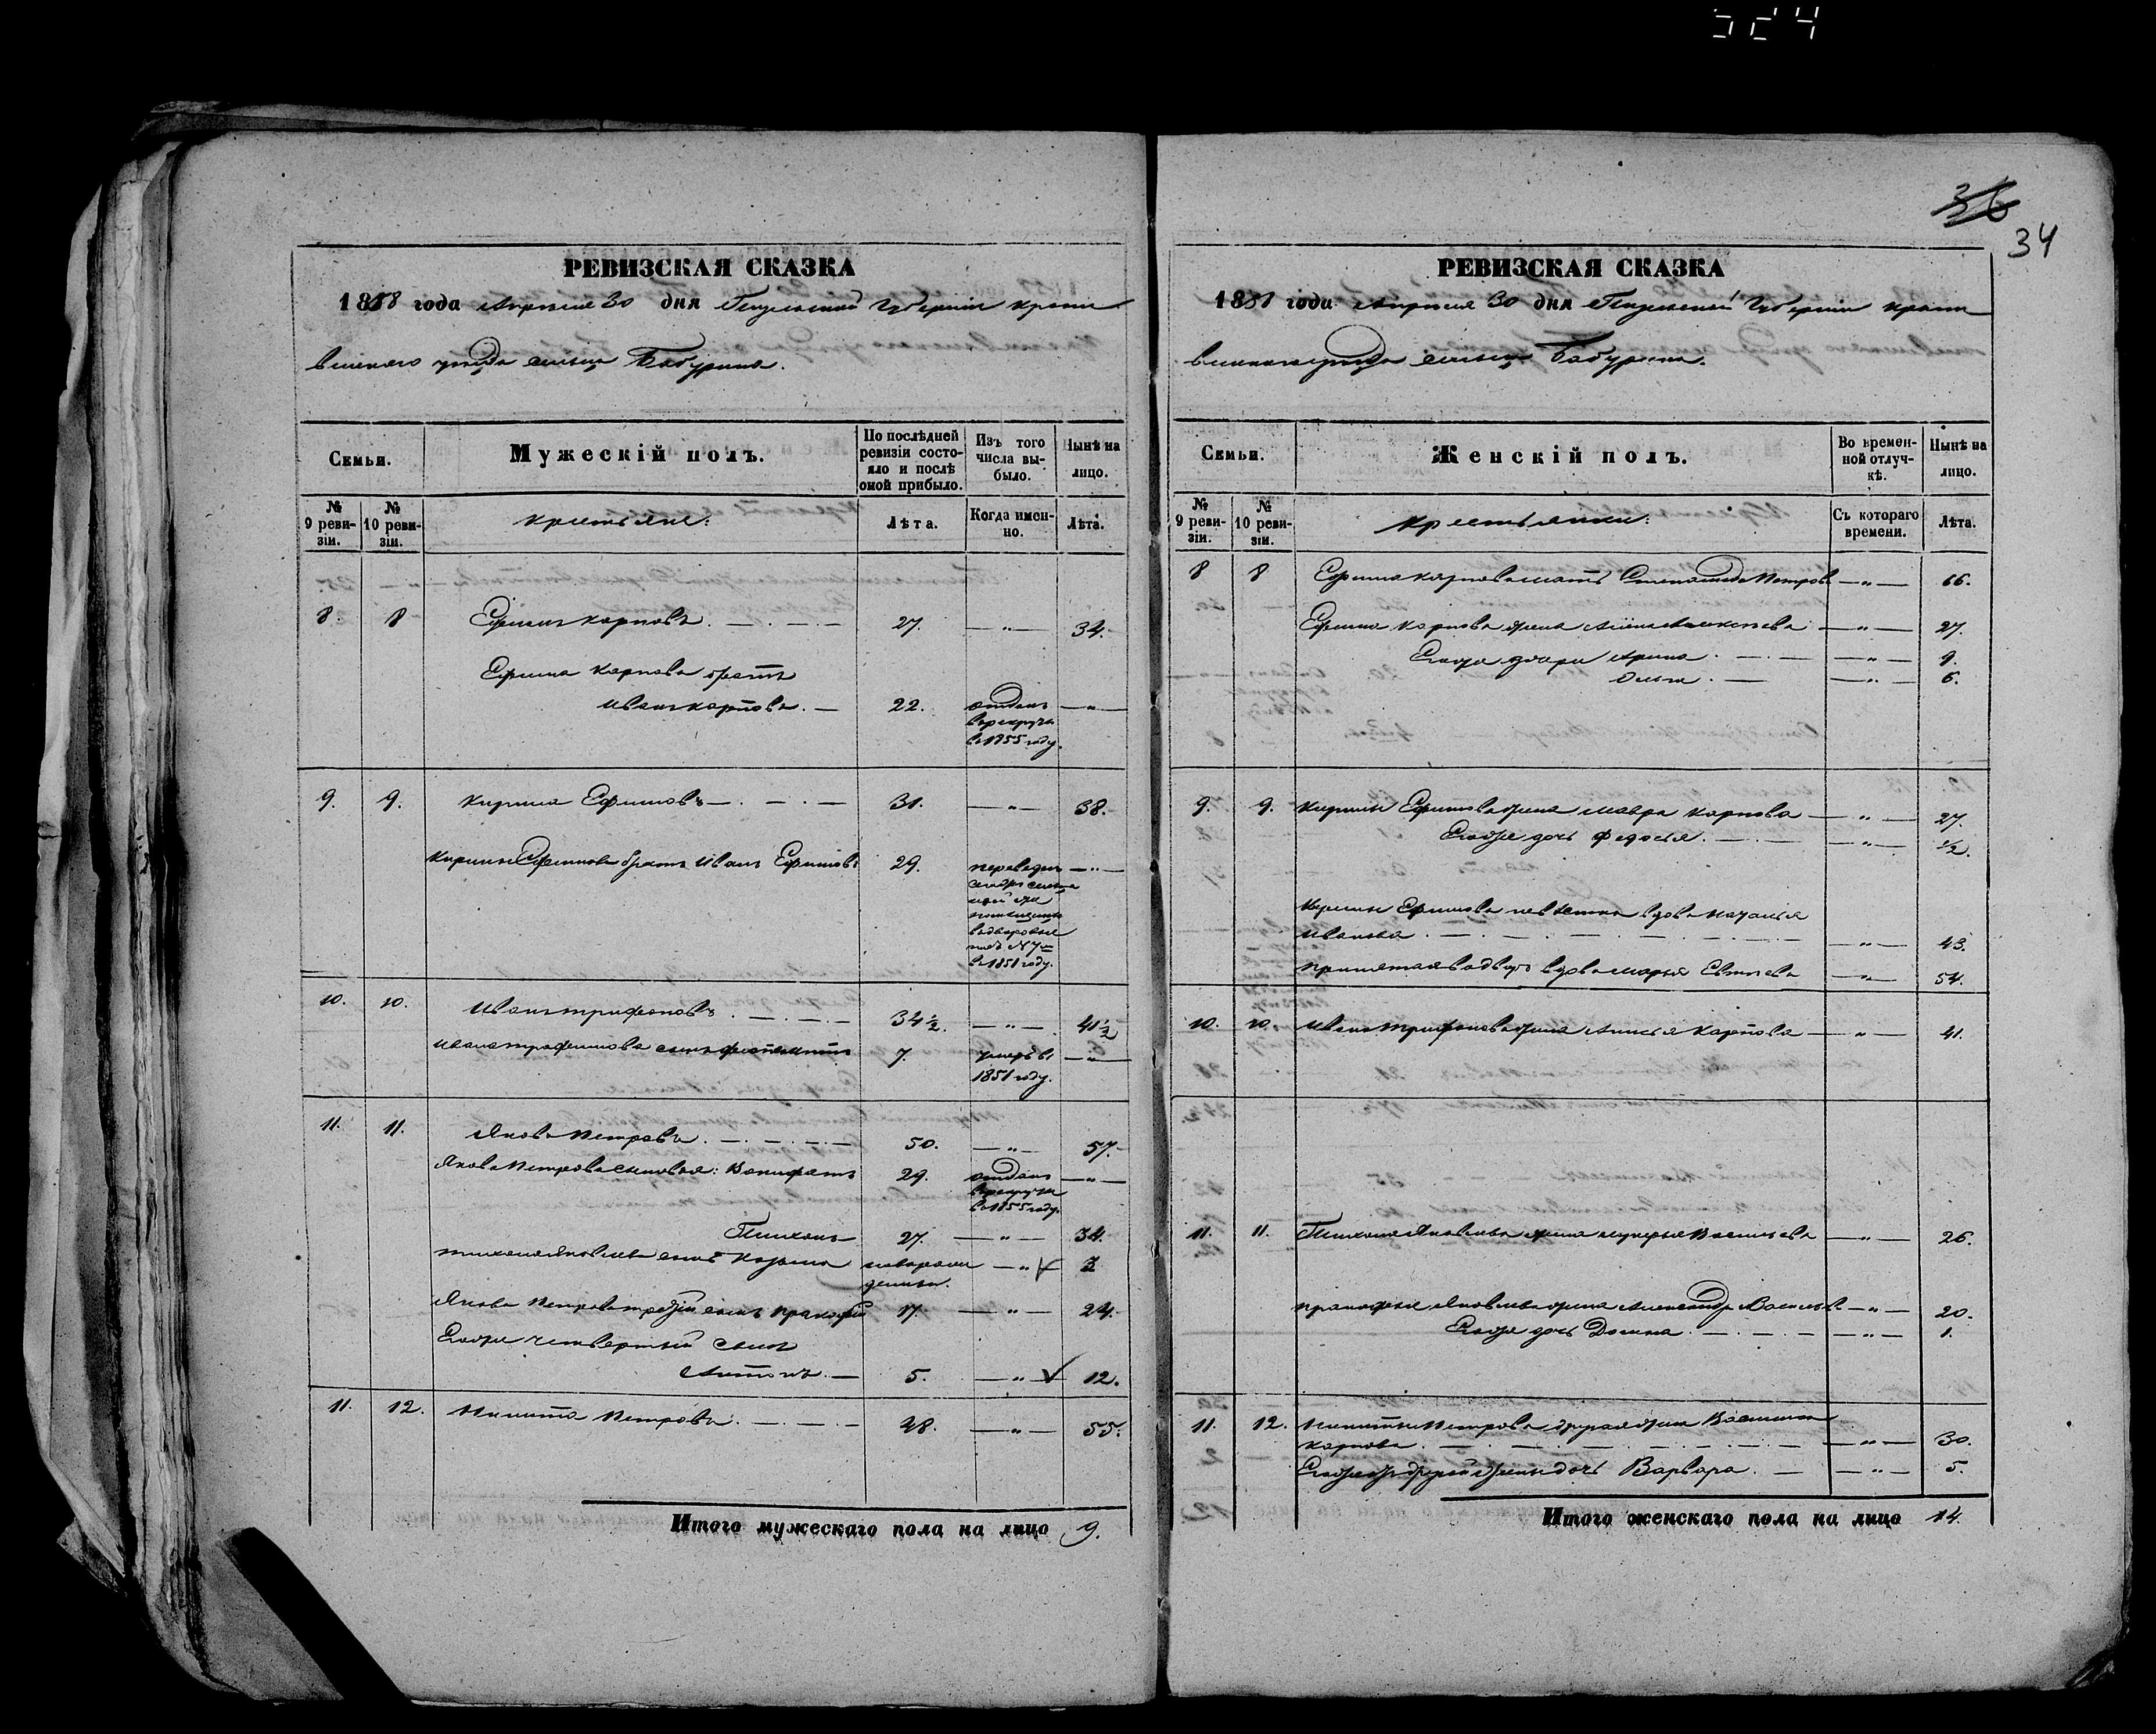 34
РЕВИЗСКАЯ СКАЗКА
1858 года Апреля 30 дня Тульской Губернiи Крапи
венского уѣзда сельца Бабурина.
Семьи.
Мужескiй полъ.
По послѣдней ревизiи состояло и послѣ оной прибыло.
Изъ того числа выбыло.
Нынѣ на лицо.
№ 9 ревизiи.
№ 10 ревизiи.
Крестьяне:
Лѣта.
Когда именно.
Лѣта.
8. 8 Ефимъ Карповъ 27. — " — 34.
Ефима Карпова братъ
Иванъ Карповъ. — 22. отданъ — " —
в рекруты
в 1855 году.
9. 9. Кирила Ефимовъ 31. — " — 38.
Кирилы Ефимова братъ Иванъ Ефимовъ 29. переведенъ — " —
в 1851 году.
10. 10. Иванъ Трифоновъ 34½. — " — 41½
Ивана Трифонова сынъ 7. умеръ в — " —
1851 году.
11. 11. Яковъ Петровъ 50. — " — 57.
Якова Петрова сыновья: Вонифатъ 29. отданъ — " —
в рекруты
в 1855 году.
Тихонъ 27. — " — 34.
Тихона Яковлева сынъ Козьма новорож — " —
денъ.
Якова Петрова третiй сынъ Прокофiй 17. — " — 24.
Егоже четвертый сынъ
Антонъ. — 5. — " — 12.
11. 12. Никита Петровъ 48. — " — 55.
Итого мужескаго пола на лицо 9.
РЕВИЗСКАЯ СКАЗКА
1858 года Апреля 30 дня Тульской Губернiи Крапи
венского уѣзда сельца Бабурина.
Семьи.
Женскiй полъ.
Во временной отлучкѣ.
Нынѣ на лицо.
№ 9 ревизiи.
№ 10 ревизiи.
Крестьянки:
Съ котораго времени.
Лѣта.
8 8 Ефима Карпова мать Степанида Петрова — " — 66.
Ефима Карпова жена Алена Алексеева — " — 27.
Егоже дочери Арина — " — 9.
Ольга — " — 6.
9. 9. Кирилы Ефимова жена Мавра Карпова — " — 27.
Егоже дочь Федосья — " — ½.
Кирилы Ефимова невѣстка вдова Наталья
Иванова — " — 43.
вдова Марья — " — 54.
10. 10. Ивана Трифонова жена Анисья Карпова — " — 41.
11. 11. Тихона Яковлева жена Лукерья Васильева — " — 26.
Прокофья Яковлева жена Александра Васильева — " — 20.
Егоже дочь Домна — " — 1.
11. 12. Никиты Петрова другая жена Василиса
Карпова — " — 30.
Егоже от другой жены дочь Варвара. — " — 5.
Итого женскаго пола на лицо 14.